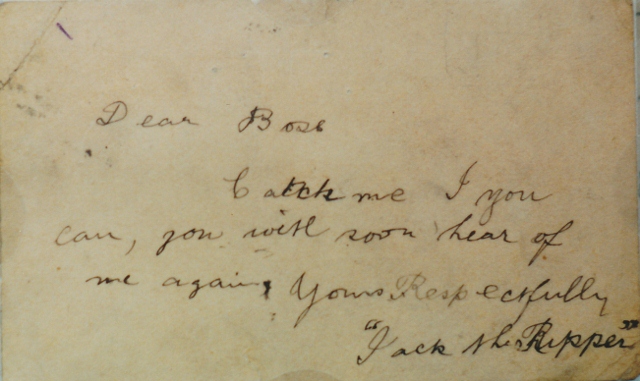 Dear Boss
Catch me I you
can, you will soon hear of
me again, Yours Respectfully
"Jack the Ripper"